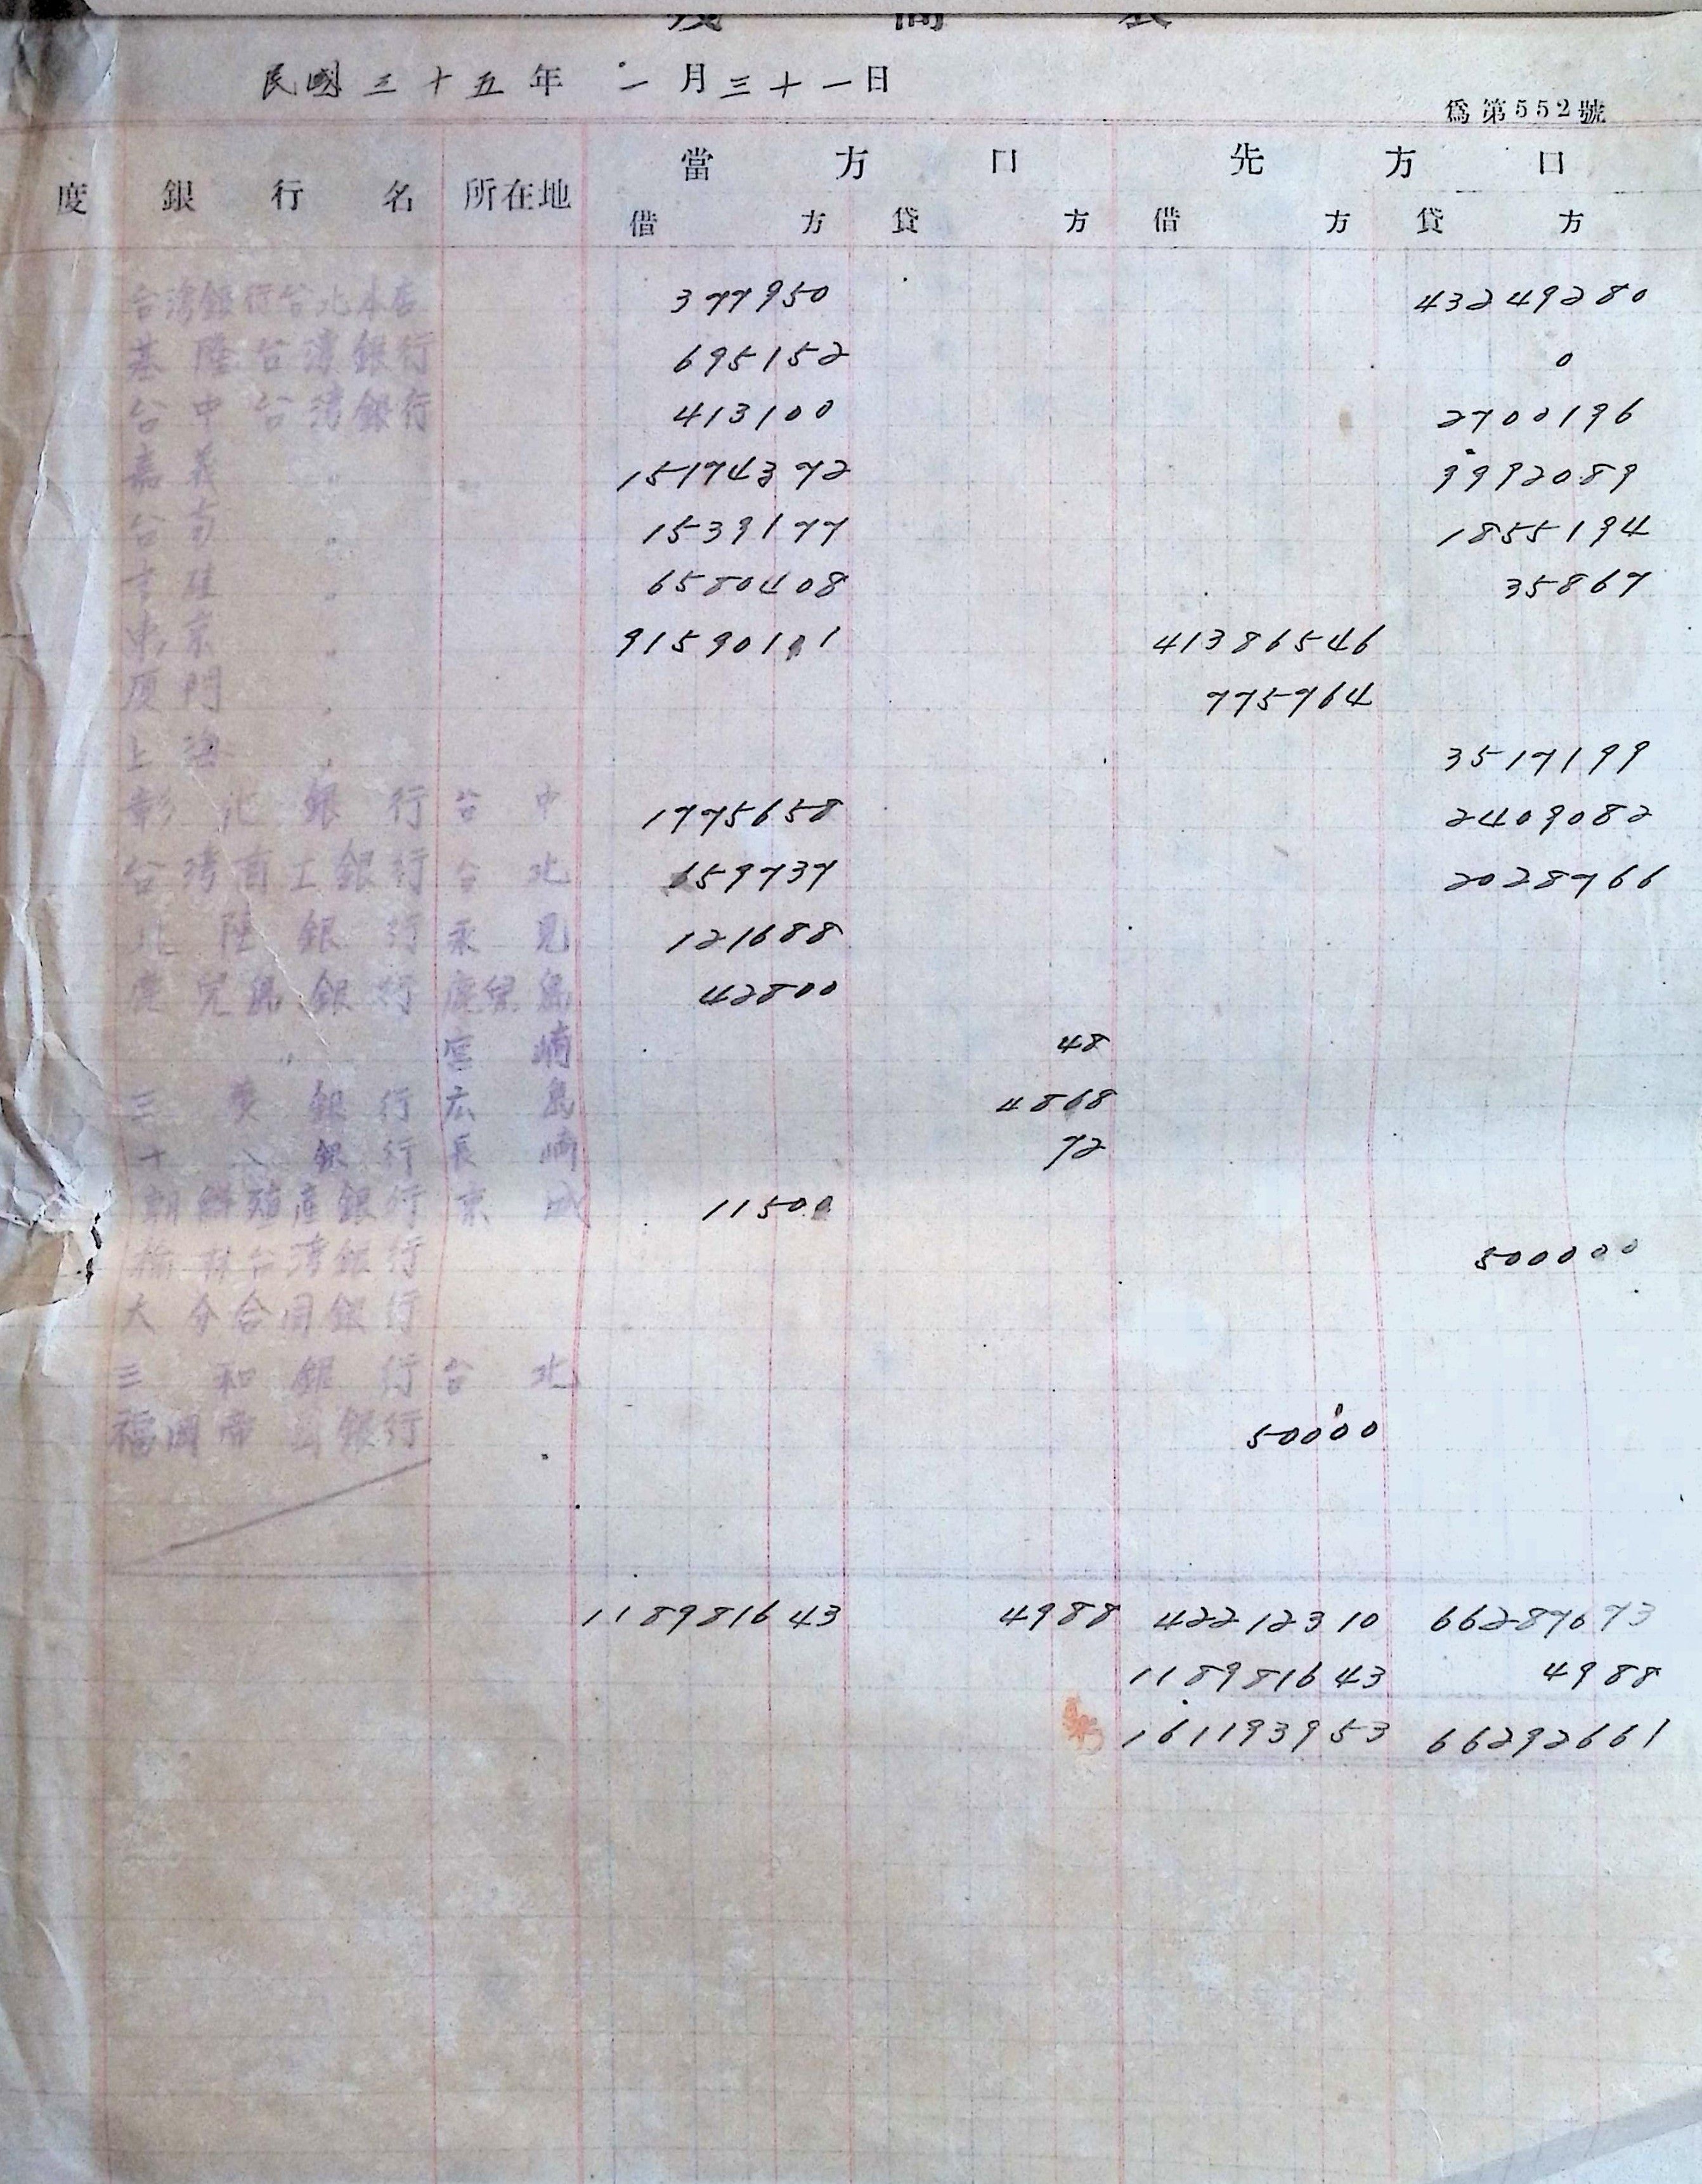 残高表
民國三十五年 一月三十一日
爲第552號
度 銀行名 所在地 當方口 先方口
借方 貸方 借方 貸方
台湾銀行台北本店 377950 43249280
基隆台湾銀行 695152 0
台中台湾銀行 413100 2700196
嘉義 〃 15174372 9992089
台南 〃 1539177 1855194
高雄 〃 6580408 35867
東京 〃 91590101 41386546
厦門 〃 775764
上海 〃 3517199
彰化銀行 台中 1775658 2409082
台湾商工銀行 台北 659737 2028766
北陸銀行 氷見 121688
鹿児島銀行 鹿児島 42800
〃 宮崎 48
三菱銀行 広島 4868
十八銀行 長崎 72
朝鮮殖産銀行 京城 11500
台湾銀行 500000
大分合同銀行
三和銀行 台北
福岡帝国銀行 50000
118981643 4988 42212310 66287673
118981643 4988
161193953 66292661